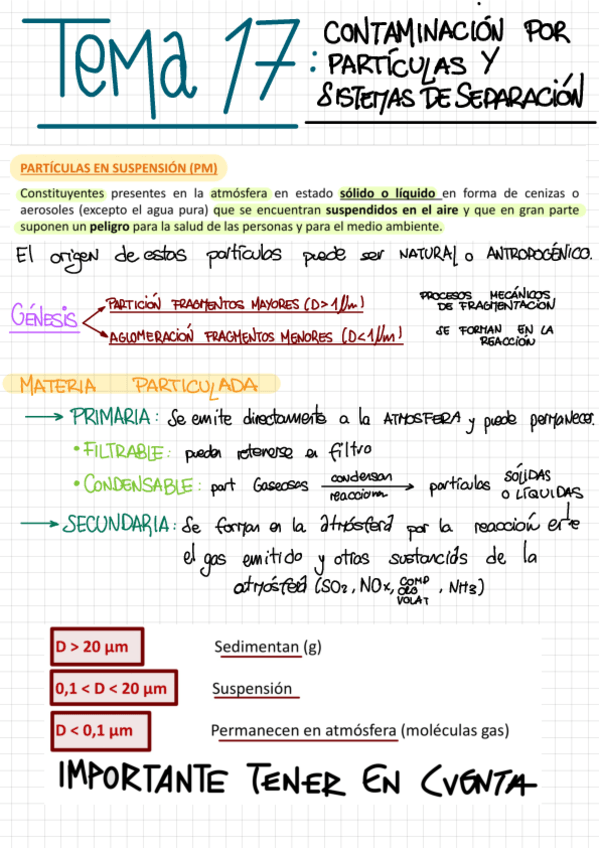 Tema 17: CONTAMINACIÓN POR
PARTÍCULAS Y
SISTEMAS DE SEPARACIÓN
PARTÍCULAS EN SUSPENSIÓN (PM)
Constituyentes presentes en la atmósfera en estado sólido o líquido en forma de cenizas o
aerosoles (excepto el agua pura) que se encuentran suspendidos en el aire y que en gran parte
suponen un peligro para la salud de las personas y para el medio ambiente.
El origen de estas partículas puede ser NATURAL o ANTROPOGÉNICO.
GÉNESIS
PARTICIÓN FRAGMENTOS MAYORES (D>1μm)
PROCESOS MECÁNICOS
DE FRAGMENTACIÓN
AGLOMERACIÓN FRAGMENTOS MENORES (D<1μm)
SE FORMAN EN LA
REACCIÓN
MATERIA PARTICULADA
→ PRIMARIA: Se emite directamente a la ATMOSFERA y puede permanecer.
• FILTRABLE: pueden retenerse en filtro
• CONDENSABLE: part Gaseosas condensan
reaccionan → partículas SÓLIDAS
O LÍQUIDAS
→ SECUNDARIA: Se forman en la atmósfera por la reacción entre
el gas emitido y otras sustancias de la
atmósfera (SO2, NOx, COMP
ORG
VOLAT, NH3)
D > 20 μm Sedimentan (g)
0,1 < D < 20 μm Suspensión
D < 0,1 μm Permanecen en atmósfera (moléculas gas)
IMPORTANTE TENER EN CUENTA